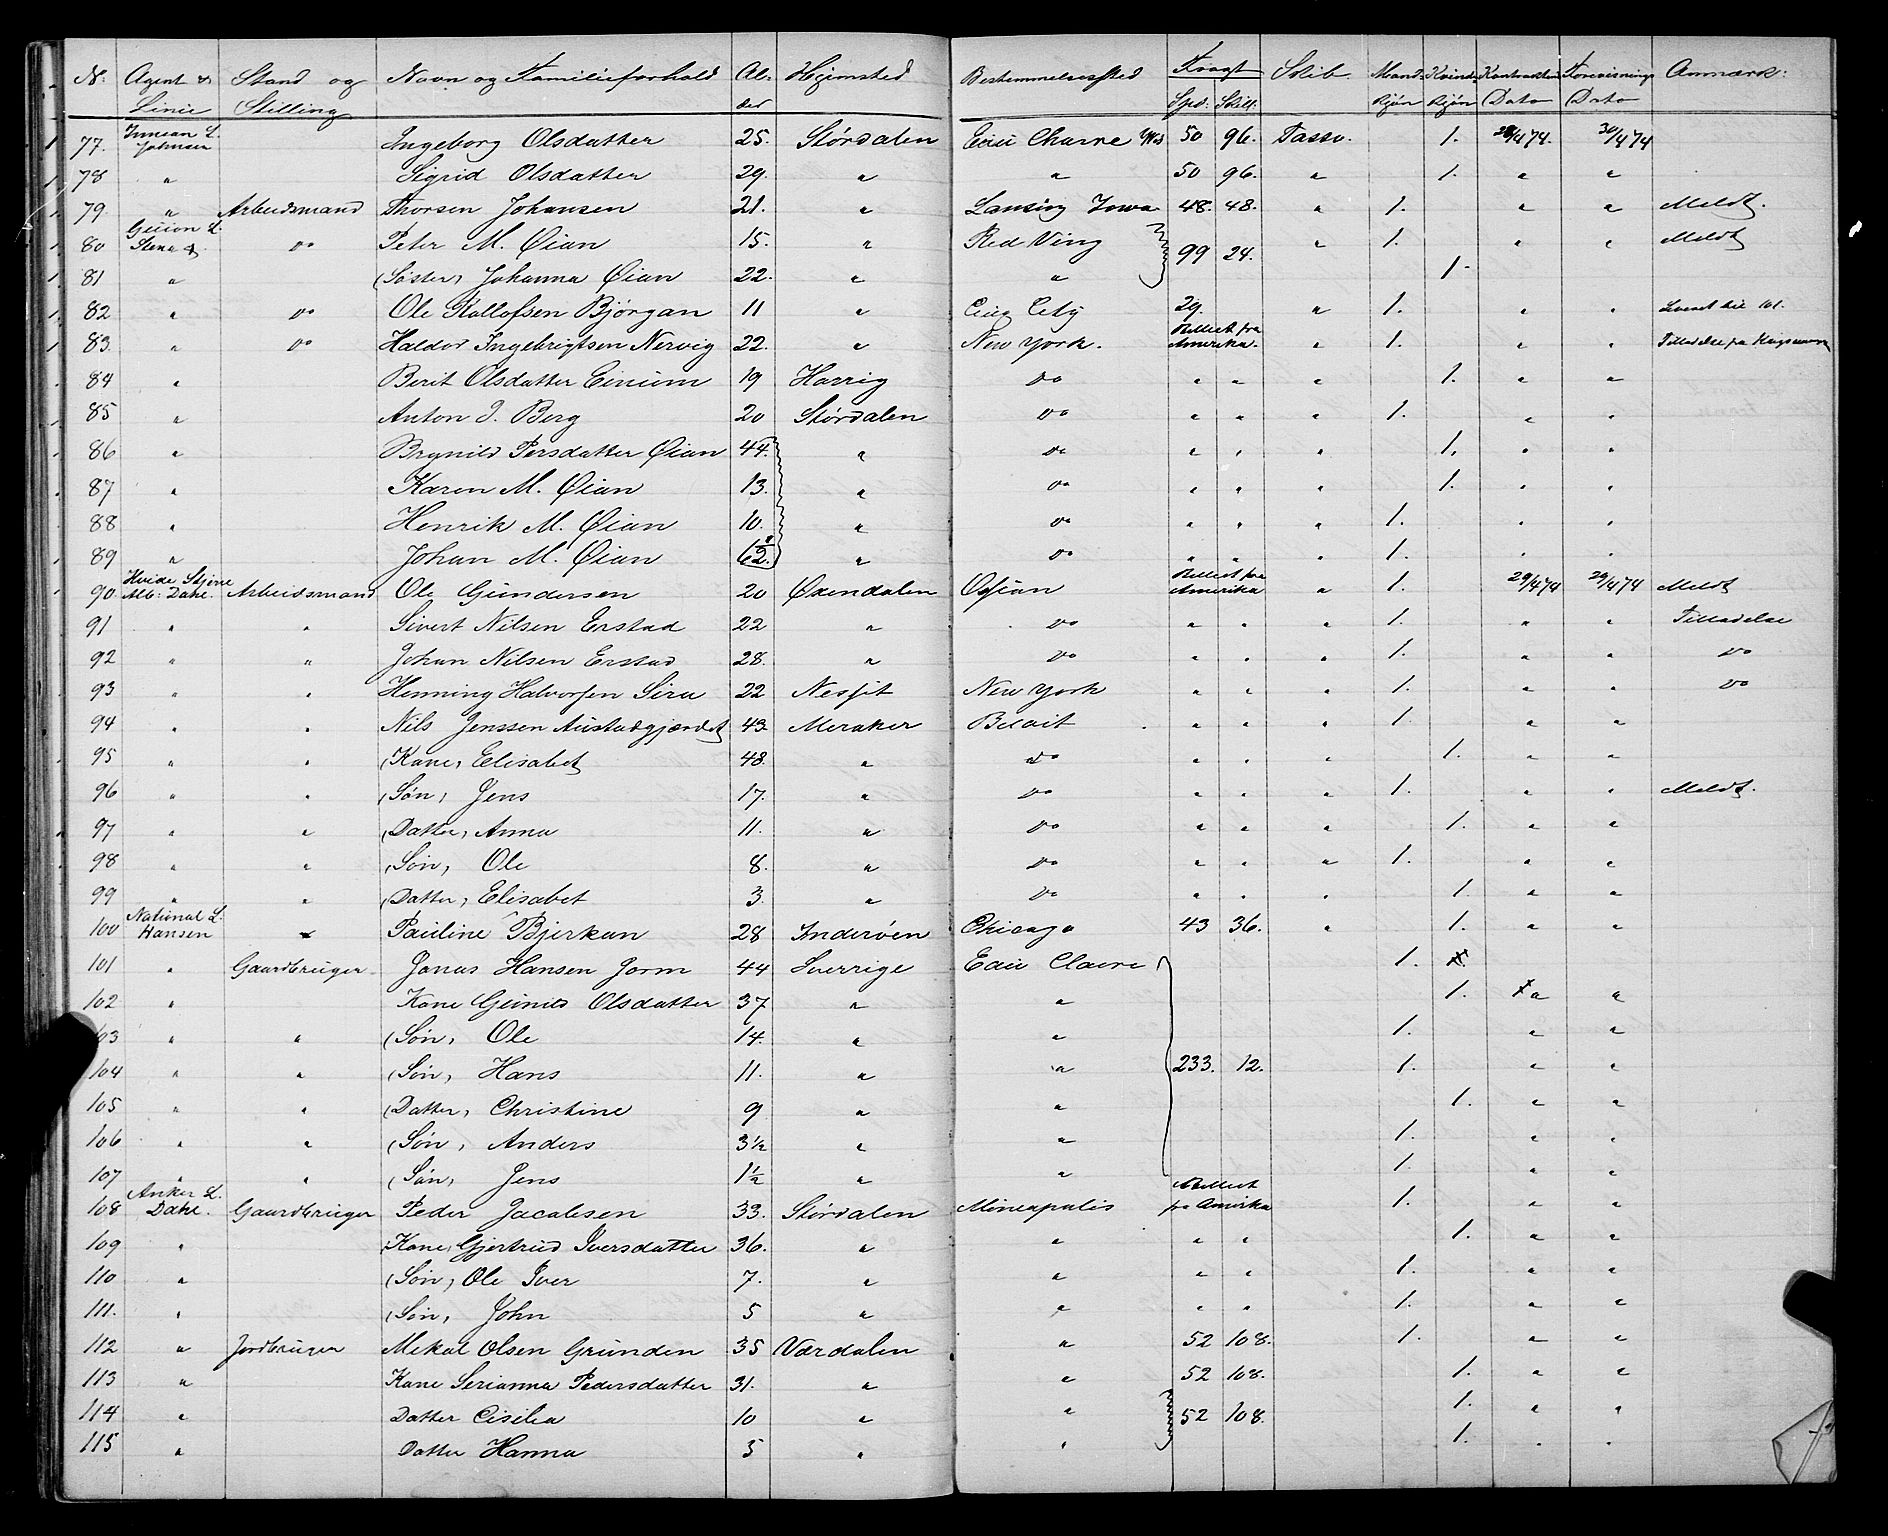 N: Agent & Linie Stand og Stilling Navn og Familieforhold Alder Hjemsted Bestemmelsessted Fragt Spd: Skill: Skib Mandkjøn Kvindkjøn Kontraktens Dato Forevisnings Dato Anmærk:
77. Inman L. Johnsen Ingeborg Olsdatter 25. Størdalen Eau Charre Wis 50 96. Tasso. 1. 28/4 74. 30/4 74
78 " Sigrid Olsdatter 29. " " 50 96. " 1. " "
79. " Arbeidsmand Thorsen Johansen 21. " Lansing Iowa 48. 48. " 1. " " Meldt.
80 Guion L. Stene & do Peter M. Øian 15. " Red Ving 99 24. " 1. " " Meldt
81 " (Søster) Johanna Øian 22. " " 1.
82 " do Ole Rollofsen Bjørgan 11 " City 29. " 1. " "
83. " do Haldor Ingebrigtsen Nervig 22. " New York. Billett fra Amerika. " 1. " " Tilladelse fra
84 " Berit Olsdatter Einum 19 Harrig do " " " 1. " "
85 " Anton J. Berg 20 Størdalen do " " " 1. " "
86 " Brynild Persdatter Øian 44. " do " " " 1. " "
87 " Karen M. Øian 13. " do " " " 1. " "
88 " Henrik M. Øian 10. " do " " " 1. " "
89 " Johan M. Øian " do " " " 1. " "
90. Hvide Stjerne Alb: Dahl. Arbeidsmand Ole Gundersen 20 Øxendalen Ossian Billett fra Amerika " 1. 29/4 74 29/4 74 Meldt
91 " " Sivert Nilsen Erstad 22 " do " " " 1. " " Tilladelse
92 " " Johan Nilsen Erstad 28. " do " " " 1. " " do
93 " " Henning Halvorsen Sira 22 Nessit New York " " " 1. " " do
94 " " Nils Jenssen Austadgjærdet 43. Meraker Beloit " " " 1. " "
95 " " (Kone) Elisabet 48. " do " " " 1. " "
96 " " (Søn) Jens 17. " do " " " 1. " " Meldt.
97 " " (Datter) Anna 11. " do " " " 1. " "
98 " " (Søn) Ole 8. " do " " " 1. " "
99 " " (Datter) Elisabet 3. " do " " " 1. " "
100 National L. Hansen Pauline Bjerkan 28 Inderøen Chicago 43 36. " 1. " "
101 " Gaardbruger Jonas Hansen Jorm 44 Sverrige Eau Claire 1.
102 " Kone Gunild Olsdatter 37 " " 1. " "
103 " " (Søn) Ole 14. " " 1. " "
104 " " (Søn) Hans 11. " " 233. 12. 1. " "
105 " " (Datter) Christine 9 " " 1. " "
106 " " (Søn) Anders 3½ " " 1. " "
107 " " (Søn) Jens 1½ " " 1. " "
108 Anker L. Dahl. Gaardbruger Peder Jacobsen 33. Størdalen Mineapolis Billett fra Amerika 1. " "
109 " (Kone) Gjertrud Iversdatter 36. " " " " 1. " "
110 " (Søn) Ole Iver 7. " " " " 1. " "
111. " (Søn) John 5 " " " " 1. " "
112 " Jordbruger Mekal Olsen Grunden 35 Værdalen " 52 108. 1. " "
113 " Kone Serianna Pedersdatter 31. " " 52 108. 1. " "
114 " Datter Cisilia 10 " " 52 108. 1. " "
115 " Datter Hanna 5 " " 1. " "